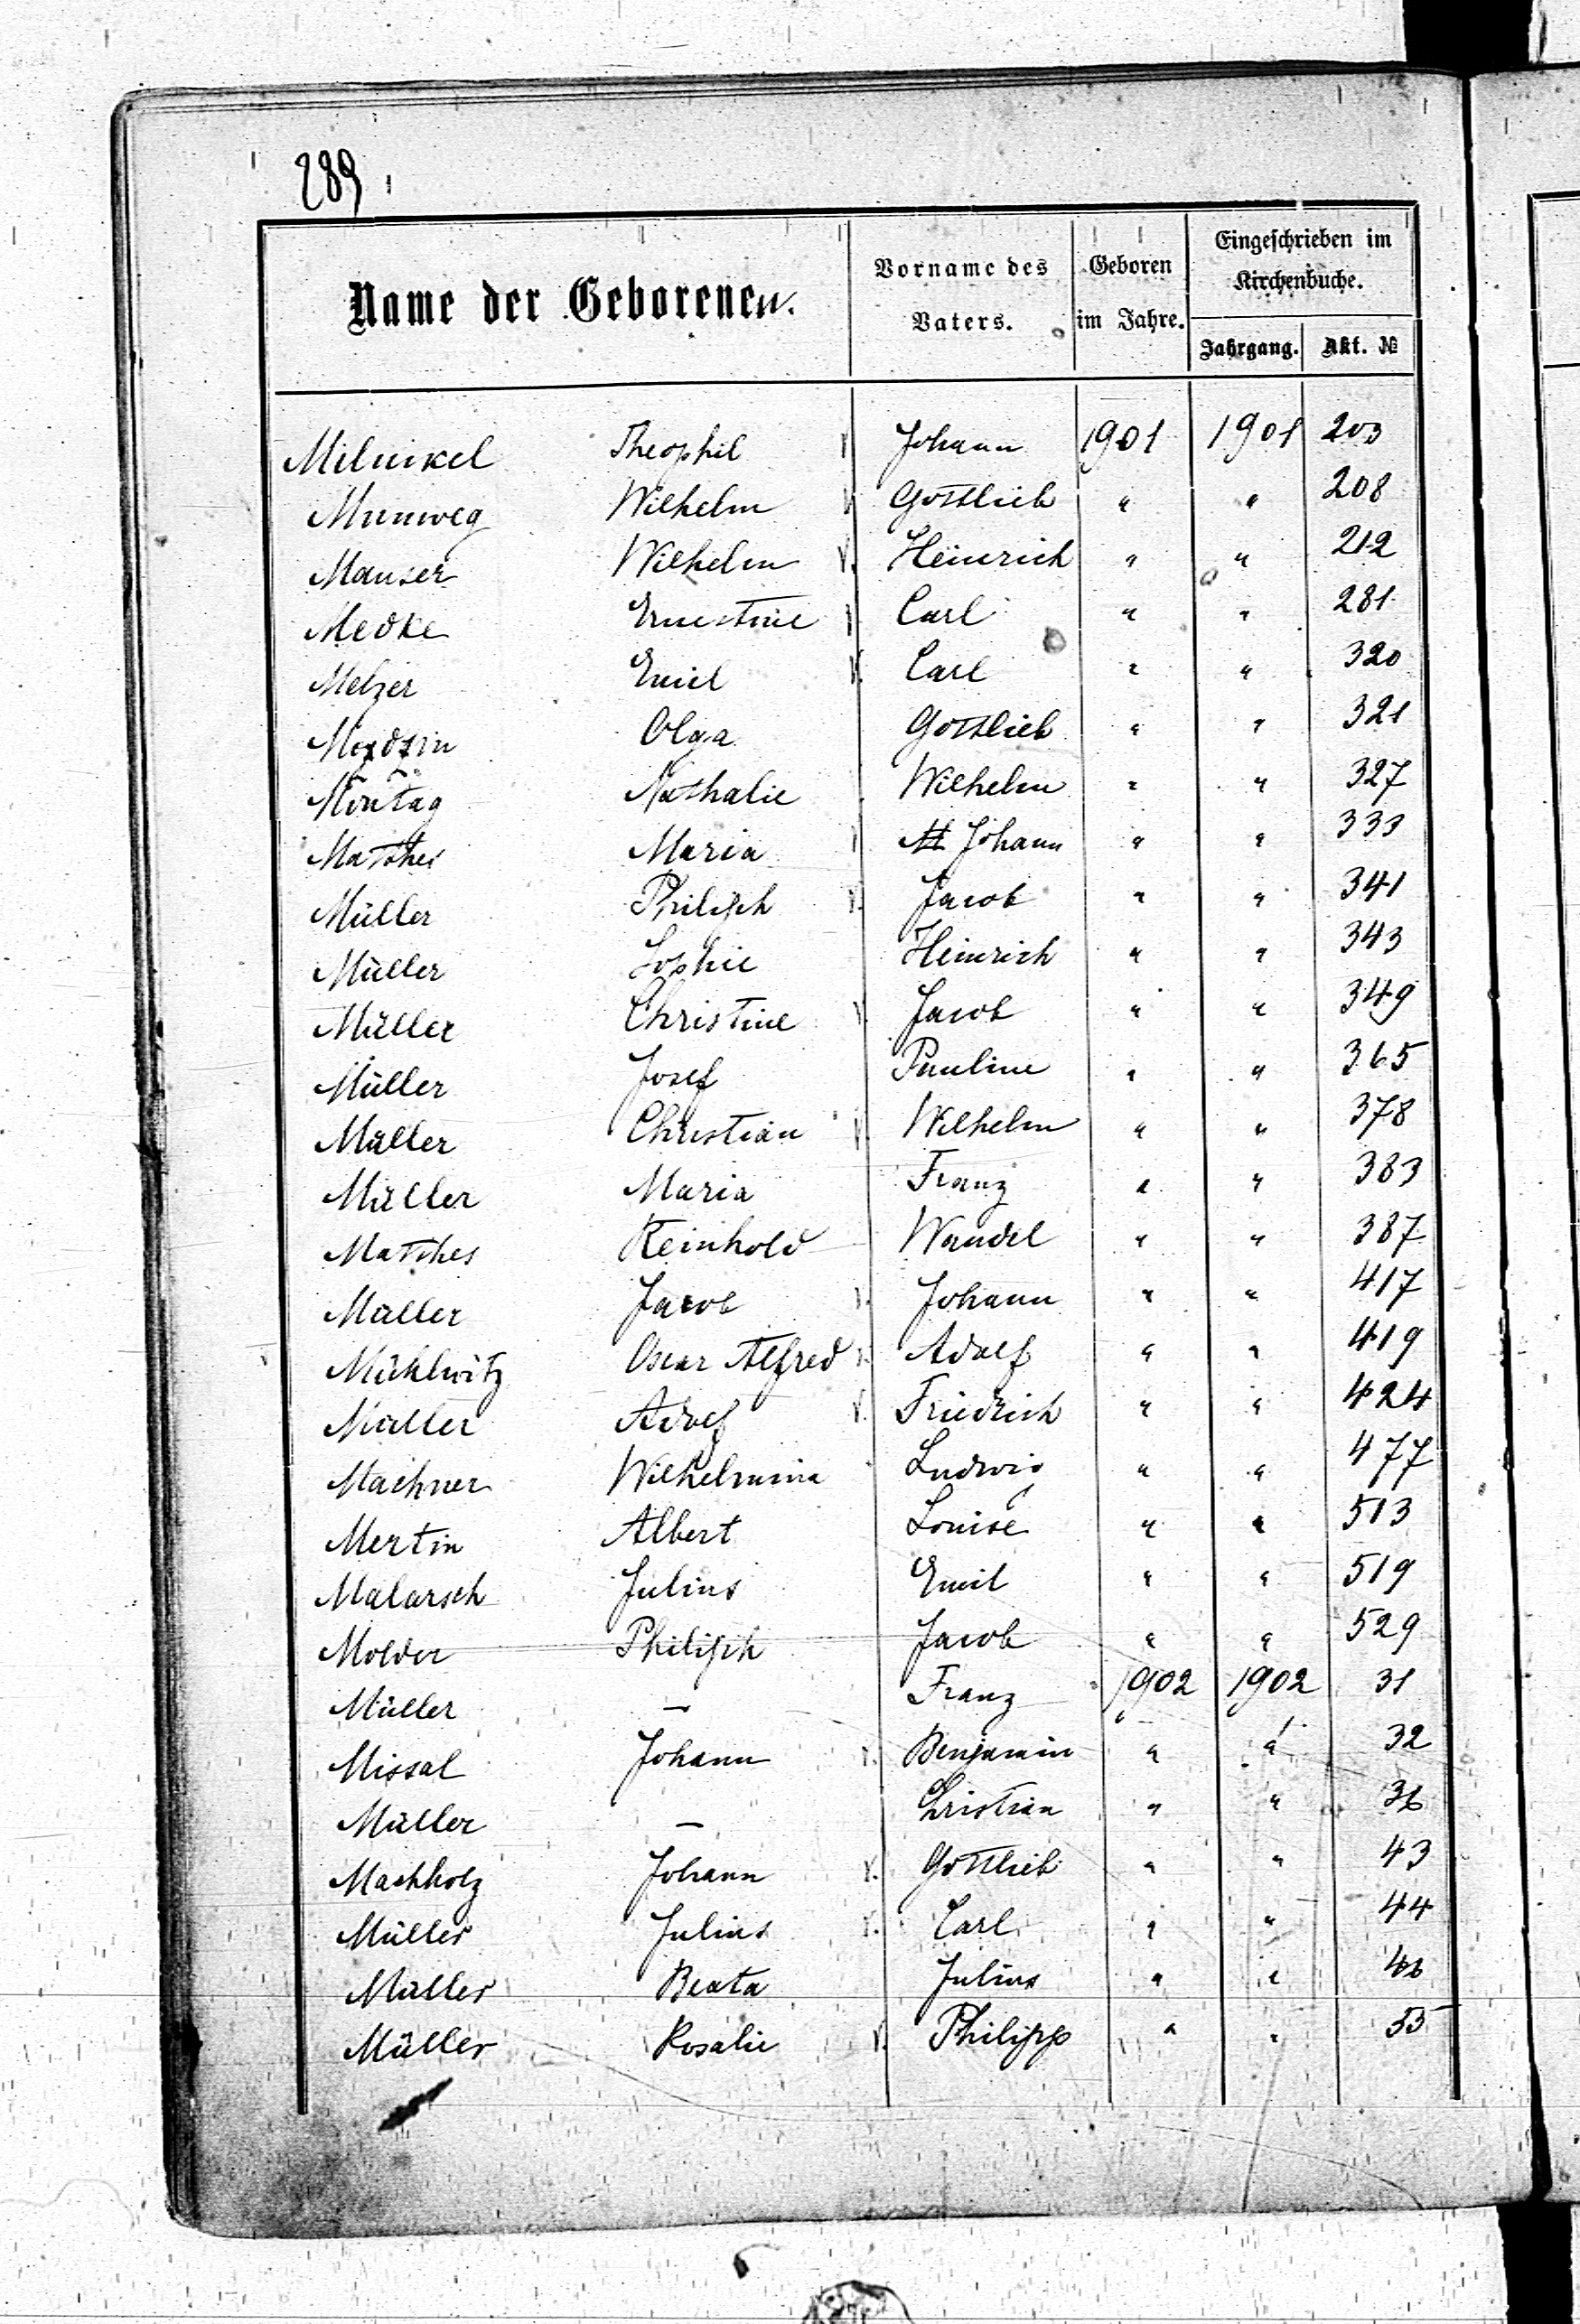 289
Name der Geborenen. Vorname des Vaters. Geboren im Jahre. Eingeschrieben im Kirchenbuche. Jahrgang. Akt. №
Milnikel Theophil Johann 1901 1901 203
Munweg Wilhelm Gottlieb " " 208
Manser Wilhelm Heinrich " " 212
Medke Ernestine Carl " " 281
Melzer Emil Carl " " 320
Olga Gottlieb " " 321
Montag Nathalie Wilhelm " " 327
Matthes Maria Johann " " 333
Müller Philipp Jacob " " 341
Müller Sophie Heinrich " " 343
Müller Christine Jacob " " 349
Müller Josef Pauline " " 365
Müller Christian Wilhelm " " 378
Müller Maria Franz " " 383
Matthes Reinhold Wandel " " 387
Müller Jacob Johann " " 417
Mühlwitz Oscar Alfred Adolf " " 419
Müller Adolf Friedrich " " 424
Machner Wilhelmina Ludwig " " 477
Mertin Albert Louise " " 513
Malarsch Julius Emil " " 519
Molder Philipp Jacob " " 529
Müller — Franz 1902 1902 31
Missal Johann Benjamin " " 32
Müller — Christian " " 36
Machholz Johann Gottlieb " " 43
Müller Julius Carl " " 44
Müller Beata Julius " " 46
Müller Rosalie Philipp " " 55